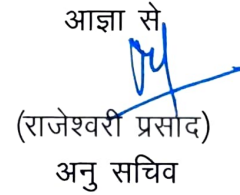 आज्ञा से
(राजेश्वरी प्रसाद)
अनु सचिव